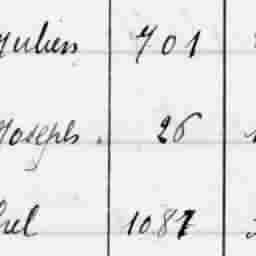 Julien 701
Joseph. 26
hel 1087